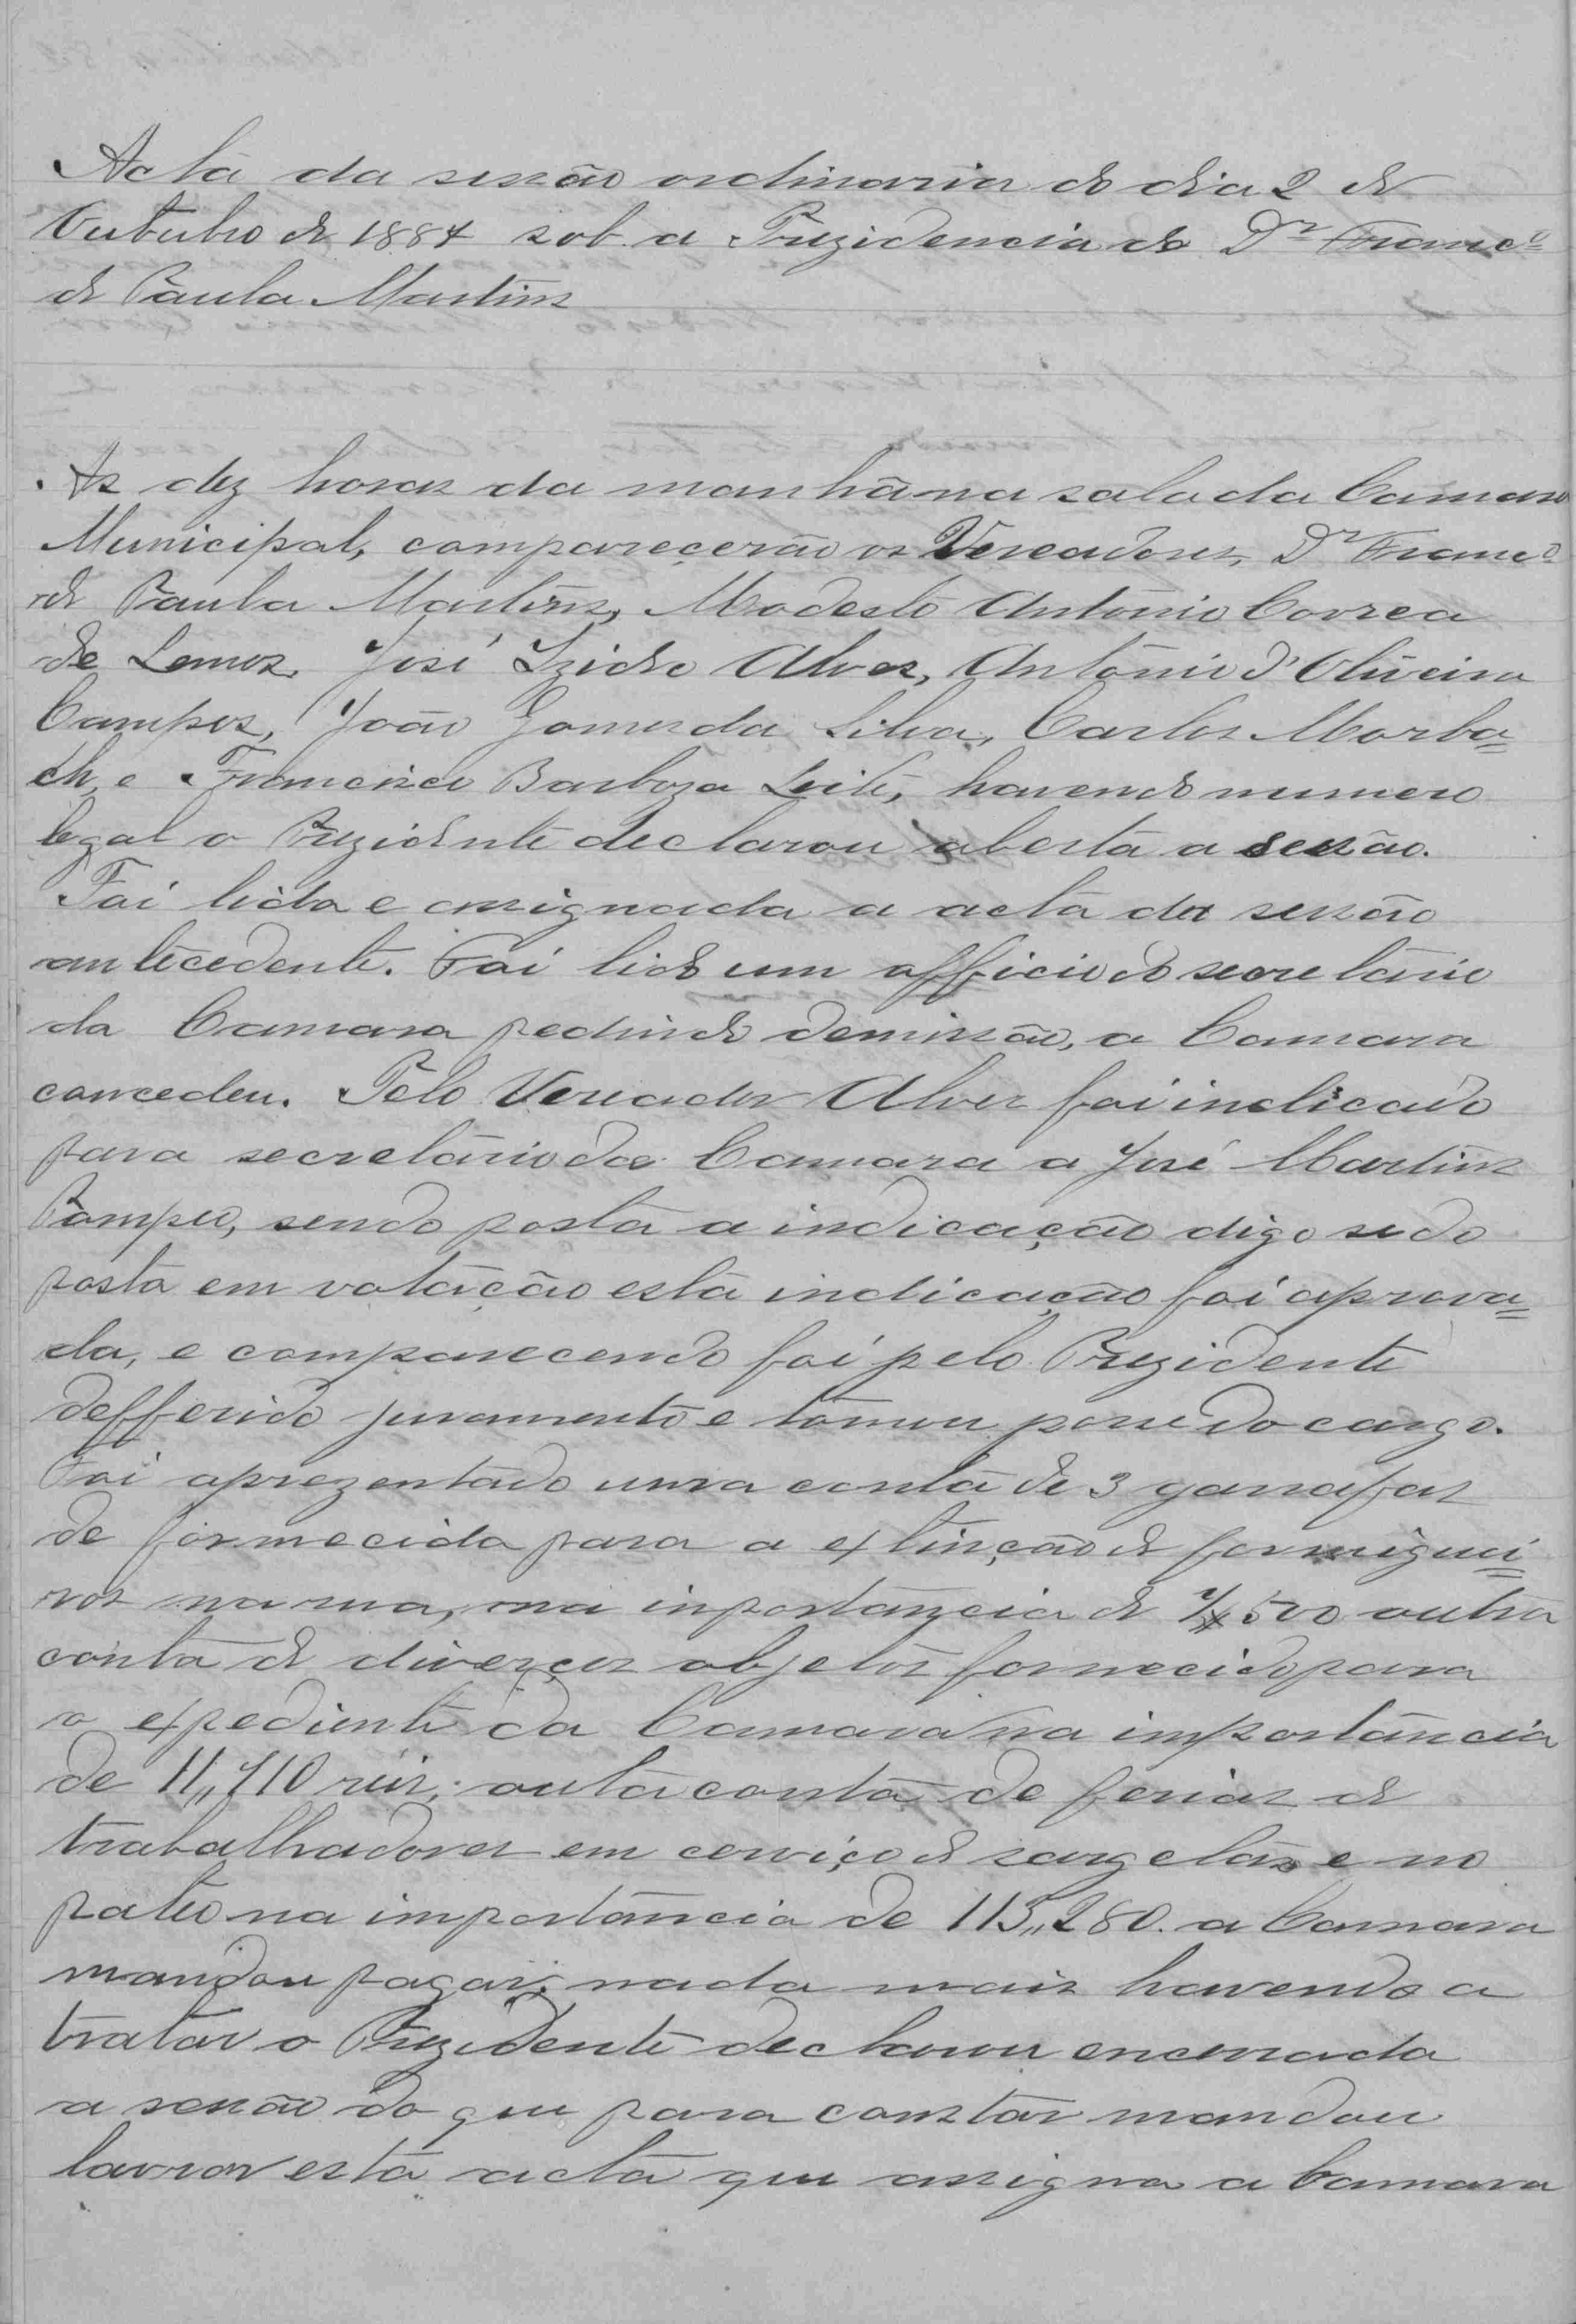 Acta da sessão ordinaria do dia 2 de
Outubro de 1884 sob a Prezidencia do Dr Franco
de Paula Martins
As dez horas da manhã na sala da Camara
Municipal, compareçerão os Vereadores, Dr Franco
de Paula Martins, Modesto Antonio Correa
de Lemos, José Izidro Alves, Antonio d'Oliveira
Campos, João Gomes da Silva, Carlos Morba=
ch, e Francisco Barboza Leite, havendo numero
legal o Prezidente declarou aberta a sessão.
Foi lida e assignada a acta da sessão
antecedente. Foi lido um afficio do secretario
da Camara pedindo demissão, a Camara
concedeu. Pelo Vereador Alves foi indicado
para secretario da Camara a José Martins
Pompeo, sendo posta a indicação digo sedo
posta em votação esta indicação foi aprova=
da, e comparecendo foi pelo Prezidente
defferido juramento e tomou posse do cargo.
Foi aprezentado uma conta de 3 garrafas
de formecida para a extinção de formiguei=
ros na rua, na inportancia de 500 outra
conta de diverços objetos fornecido para
o expediente da Camara na importancia
de 11,,710 reis; outa conta de ferias de
trabalhadores em cerviço de sargetas e no
pateo na importancia de 113,,280. a Camara
mandou pagar; nada mais havendo a
tratar o Prezidente declarou encerrada
a sessão do que para constar mandou
lavrar esta acta que assigna a Camara